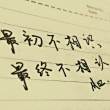 最初不相识，
最终不相认